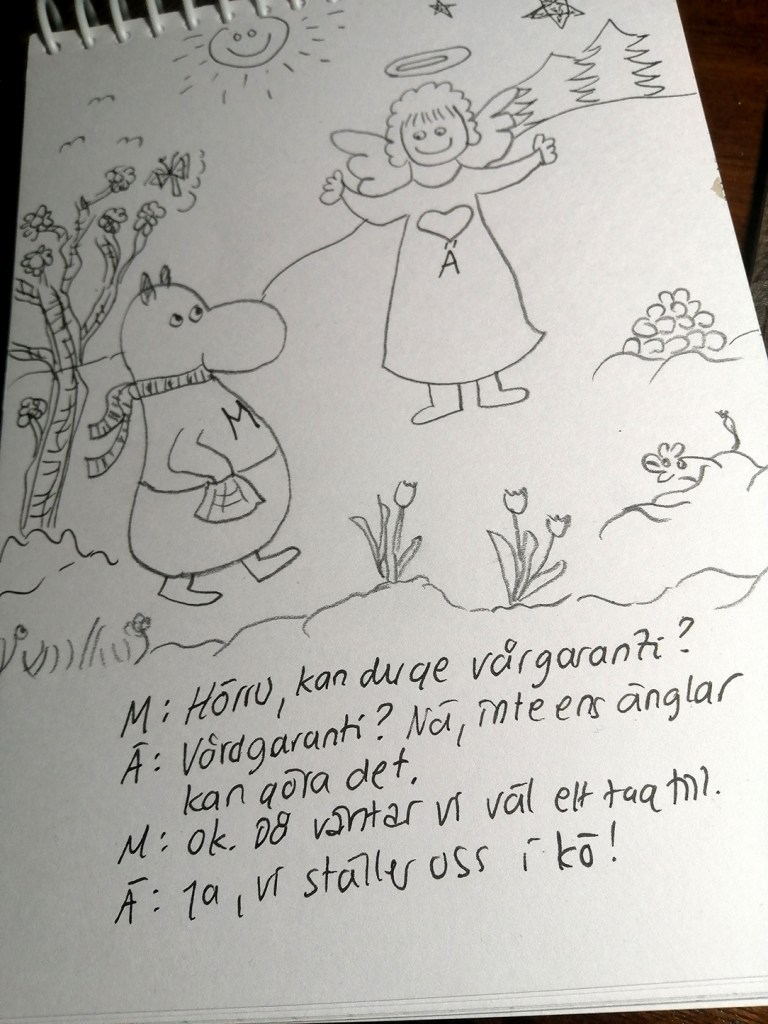 Ä
M
M: Hörru, kan du ge vårgaranti?
Ä: Vårdgaranti? Nä, inte ens änglar
kan göra det.
M: Ok. Då väntar vi väl ett tag till.
Ä: Ja, vi ställer oss i kö!